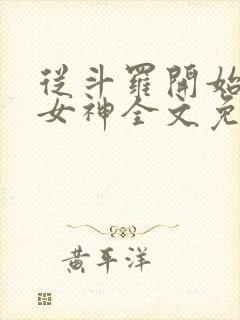 從斗羅開始
女神全文免
黃平洋